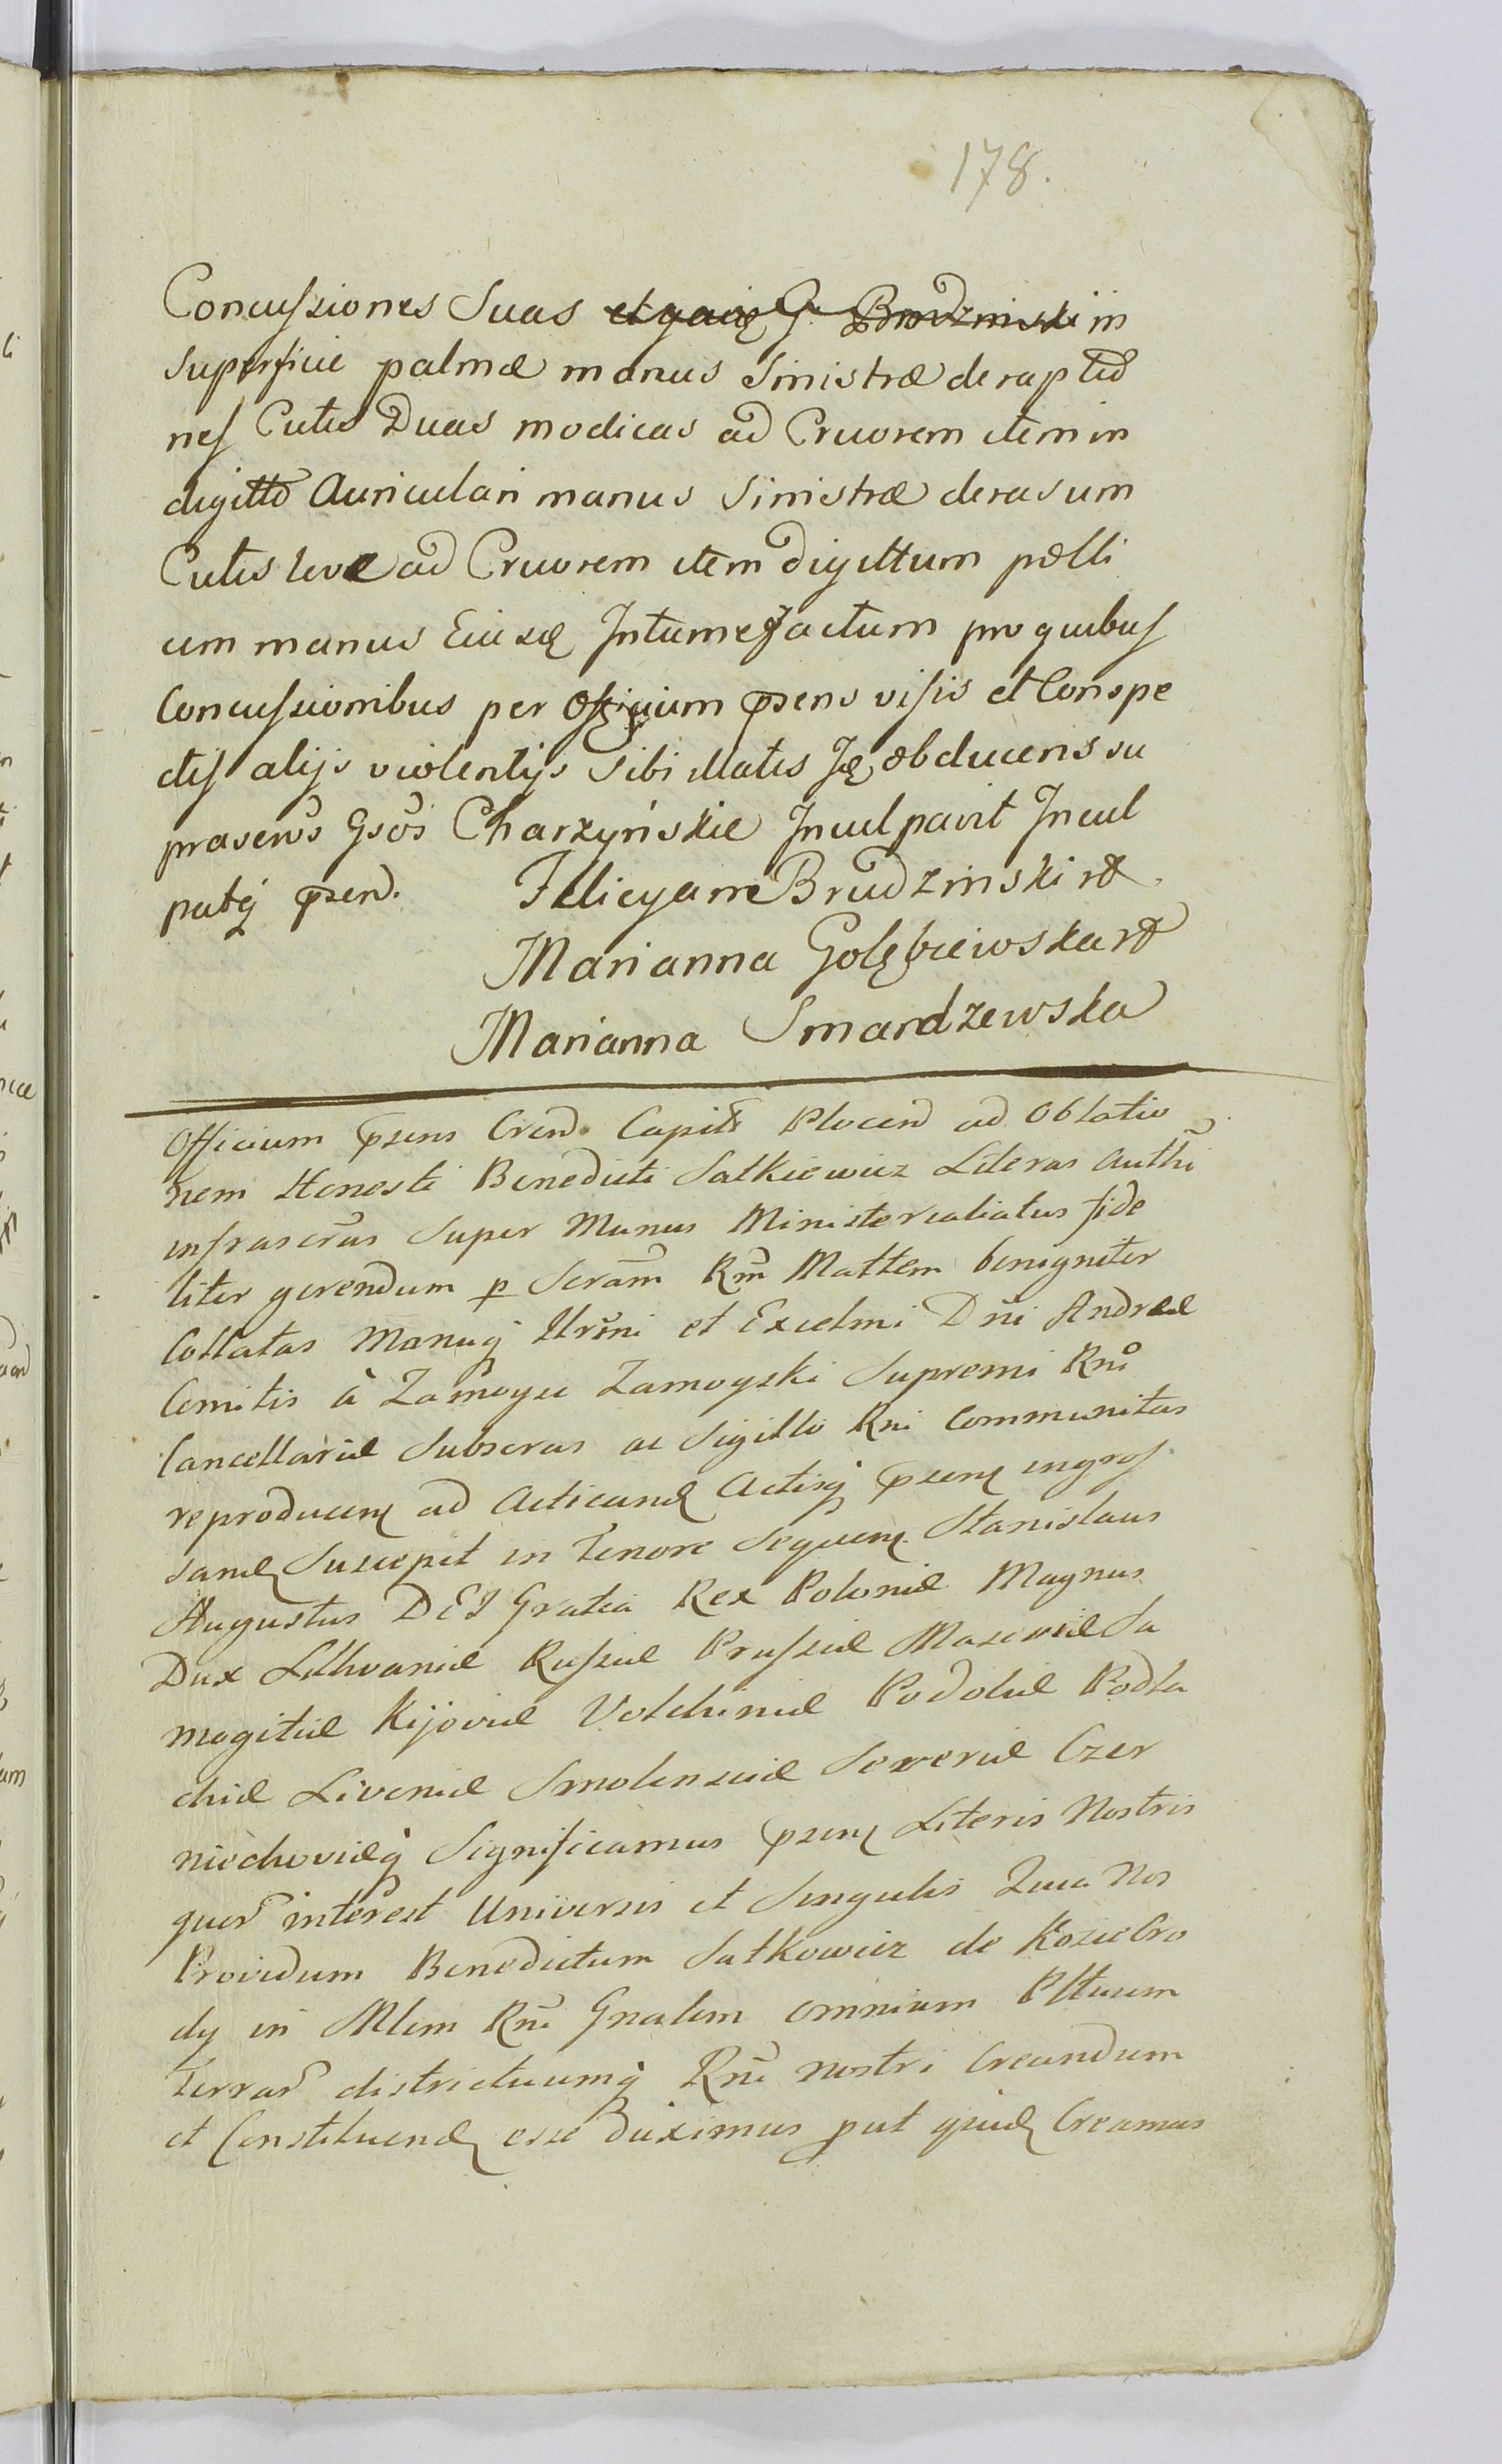 178.
Concussiones Suas et gacie G. Brudzinski in
superficie palmæ manus Sinistræ deraptio
nes Cutis Duas modicas ad Cruorem item in
digitto Auriculari manus Sinistræ derasum
Cutis leve ad Cruorem item digittum polli
cem manus Eiusd Intumefactum pro quibus
Concussionibus per Officium psens visis et Conspe
ctis alijs violentijs sibi illatis Id obducens su
prascros Gsos Charzyńskie Inculpavit Incul
patq psen. Felicyann Brudzinski
Marianna Gołębiewska
Marianna Smardzewska
Officium psens Cren Capitt Plocen ad Oblatio
nem Honesti Benedicti Salkiewicz Literas Authi
infrascras super Munus Ministerialiatus fide
liter gerendum p Seram Rm Mattem benigniter
Collatas Manuq Urmi et Excelmi Dni Andreæ
Comitis à Zamoyse Zamoyski Supremi Rni
Cancellariæ Subscras ac Sigillo Rni Communitas
reproducen ad Acticand Actisq psen ingros
sand Suscepit in Tenore Sequen Stanislaus
Augustus DEI Gratia Rex Poloniæ Magnus
Dux Lithvaniæ Russiæ Prussiæ Masoviæ Sa
mogitiæ Kijoviæ Volchiniæ Podoliæ Podla
chiæ Livoniæ Smolensciæ Severiæ Czer
niechoviæq Significamus psen Literis Nostris
quor interest Universis et Singulis Quia Nos
Providum Benedictum Salkowicz de Koziebro
dy in Mlem Rni Gnalem omnium Pltuum
Terrar districtuumq Rni nostri Creandum
et Constituend esse duximus put quid Creamus